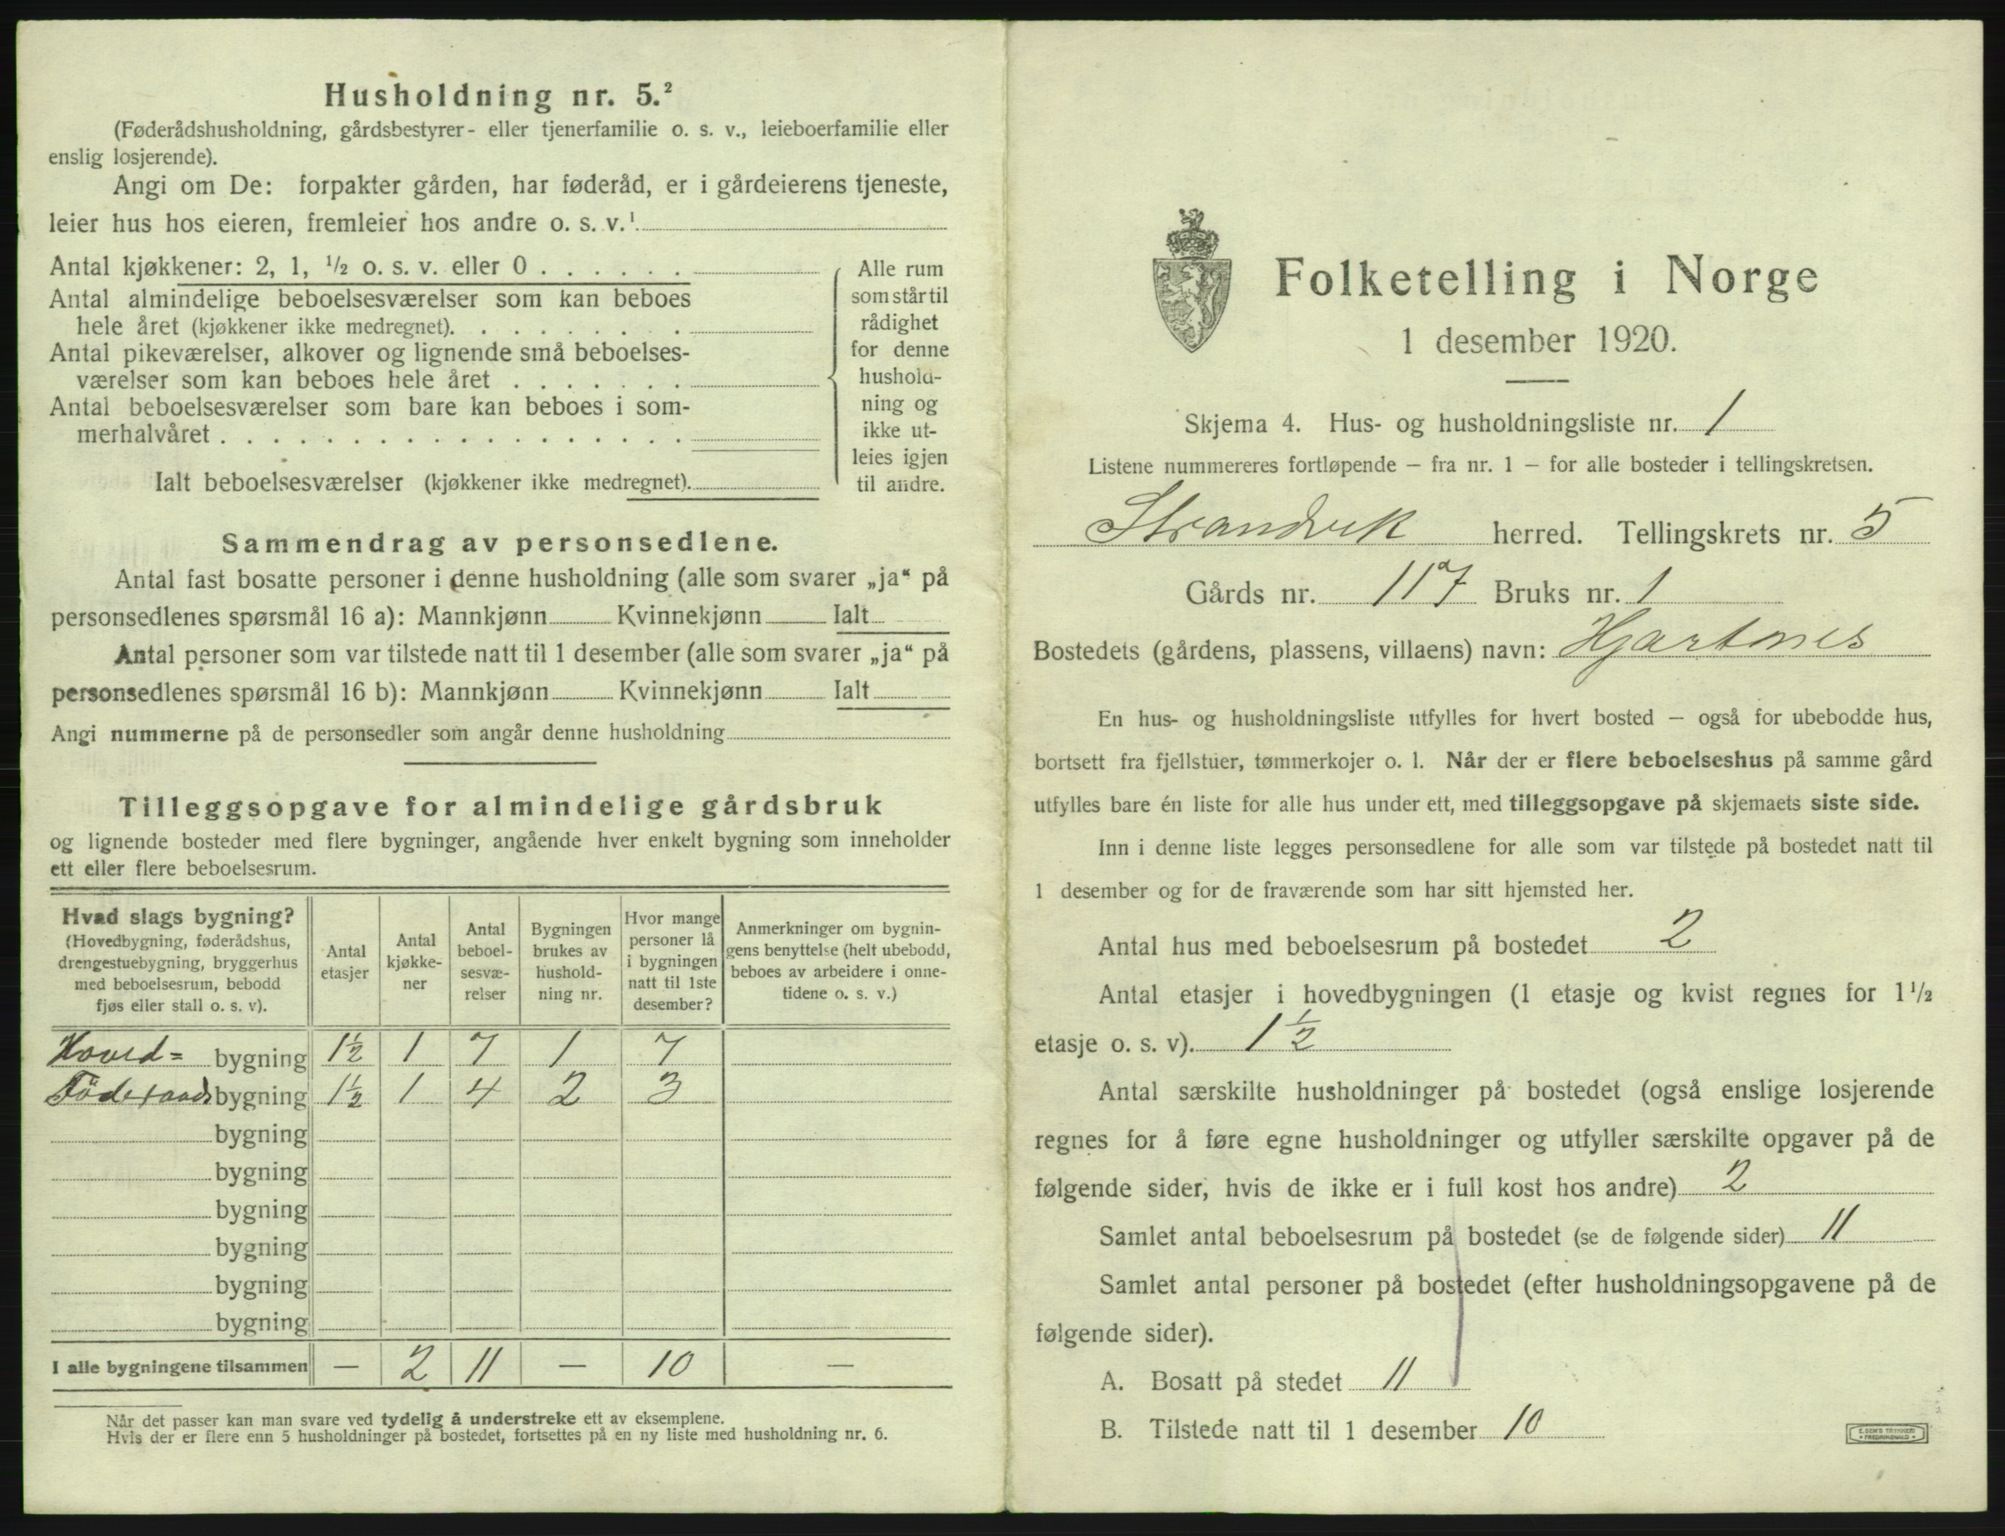 Husholdning nr. 5.²
(Føderådshusholdning, gårdsbestyrer- eller tjenerfamilie o. s. v., leieboerfamilie eller
enslig losjerende).
Angi om De: forpakter gården, har føderåd, er i gårdeierens tjeneste,
leier hus hos eieren, fremleier hos andre o. s. v.¹
Antal kjøkkener: 2, 1, ½ o. s. v. eller 0 . . . . . .
Antal almindelige beboelsesværelser som kan beboes
hele året (kjøkkener ikke medregnet). . . . . . . . .
Antal pikeværelser, alkover og lignende små beboelses-
værelser som kan beboes hele året . . . . . . .
Antal beboelsesværelser som bare kan beboes i som-
merhalvåret . . . . . . . . . . . . . . . . . .
Ialt beboelsesværelser (kjøkkener ikke medregnet).
Alle rum
som står til
rådighet
for denne
hushold-
ning og
ikke ut-
leies igjen
til andre.
Sammendrag av personsedlene.
Antal fast bosatte personer i denne husholdning (alle som svarer „ja“ på
personsedlenes spørsmål 16 a): Mannkjønn Kvinnekjønn Ialt
Antal personer som var tilstede natt til 1 desember (alle som svarer „ja“ på
personsedlenes spørsmål 16 b): Mannkjønn Kvinnekjønn Ialt
Angi nummerne på de personsedler som angår denne husholdning
Tilleggsopgave for almindelige gårdsbruk
og lignende bosteder med flere bygninger, angående hver enkelt bygning som inneholder
ett eller flere beboelsesrum.
Hvad slags bygning?
(Hovedbygning, føderådshus,
drengestuebygning, bryggerhus
med beboelsesrum, bebodd
fjøs eller stall o. s. v).
Antal
etasjer
Antal
kjøkke-
ner
Antal
beboel-
sesvæ-
relser
Bygningen
brukes av
hushold-
ning nr.
Hvor mange
personer lå
i bygningen
natt til 1ste
desember?
Anmerkninger om bygnin-
gens benyttelse (helt ubebodd,
beboes av arbeidere i onne-
tidene o. s. v.)
Hoved= bygning 1½ 1 7 1 7
Föderaads bygning 1½ 1 4 2 3
bygning
bygning
bygning
bygning
bygning
bygning
I alle bygningene tilsammen — 2 11 — 10 —
Når det passer kan man svare ved tydelig å understreke ett av eksemplene.
Hvis der er flere enn 5 husholdninger på bostedet, fortsettes på en ny liste med husholdning nr. 6.
Folketelling i Norge
1 desember 1920.
Skjema 4. Hus- og husholdningsliste nr. 1
Listene nummereres fortløpende – fra nr. 1 – for alle bosteder i tellingskretsen.
Strandvik herred. Tellingskrets nr. 5
Gårds nr. 117 Bruks nr. 1
Bostedets (gårdens, plassens, villaens) navn: Hjartnes
En hus- og husholdningsliste utfylles for hvert bosted – også for ubebodde hus,
bortsett fra fjellstuer, tømmerkojer o. l. Når der er flere beboelseshus på samme gård
utfylles bare én liste for alle hus under ett, med tilleggsopgave på skjemaets siste side.
Inn i denne liste legges personsedlene for alle som var tilstede på bostedet natt til
1 desember og for de fraværende som har sitt hjemsted her.
Antal hus med beboelsesrum på bostedet 2
Antal etasjer i hovedbygningen (1 etasje og kvist regnes for 1½
etasje o. s. v). 1½
Antal særskilte husholdninger på bostedet (også enslige losjerende
regnes for å føre egne husholdninger og utfyller særskilte opgaver på de
følgende sider, hvis de ikke er i full kost hos andre) 2
Samlet antal beboelsesrum på bostedet (se de følgende sider) 11
Samlet antal personer på bostedet (efter husholdningsopgavene på de
følgende sider).
A. Bosatt på stedet 11
B. Tilstede natt til 1 desember 10